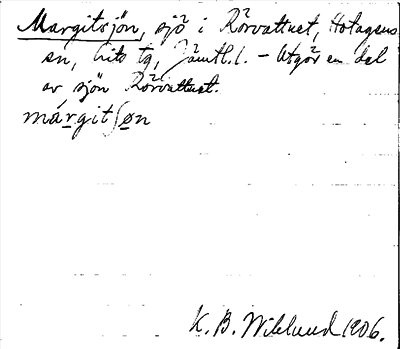 Margitsjön, sjö i Rörvattnet, Hotagens
sn, Lits tg, Jämtl.l. – Utgör en del
av sjön Rörvattnet.
márgitʃøn
K. B. Wiklund 1906.